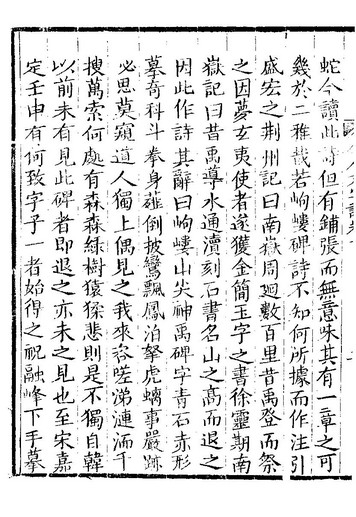 蛇今讀此詩但有鋪張而無意味其有一章之可
幾於二雅哉若岣嶁碑詩不知何所據而作注引
盛宏之荆州記曰南嶽周廻數百里昔禹登而祭
之因夢玄夷使者遂獲金簡玉字之書徐靈期南
嶽記曰昔禹導水通瀆刻石書名山之高而退之
因此作詩其辭曰岣嶁山尖神禹碑字青石赤形
摹奇科斗拳身薤倒披鸞飄鳳泊拏虎螭事嚴跡
必思莫窺道人獨上偶見之我來咨嗟涕漣洏千
搜萬索何處有森森綠樹猿猱悲則是不獨自韓
以前未有見此碑者即退之亦未之見也至宋嘉
定壬申有何致字子一者始得之祝融峰下手摹